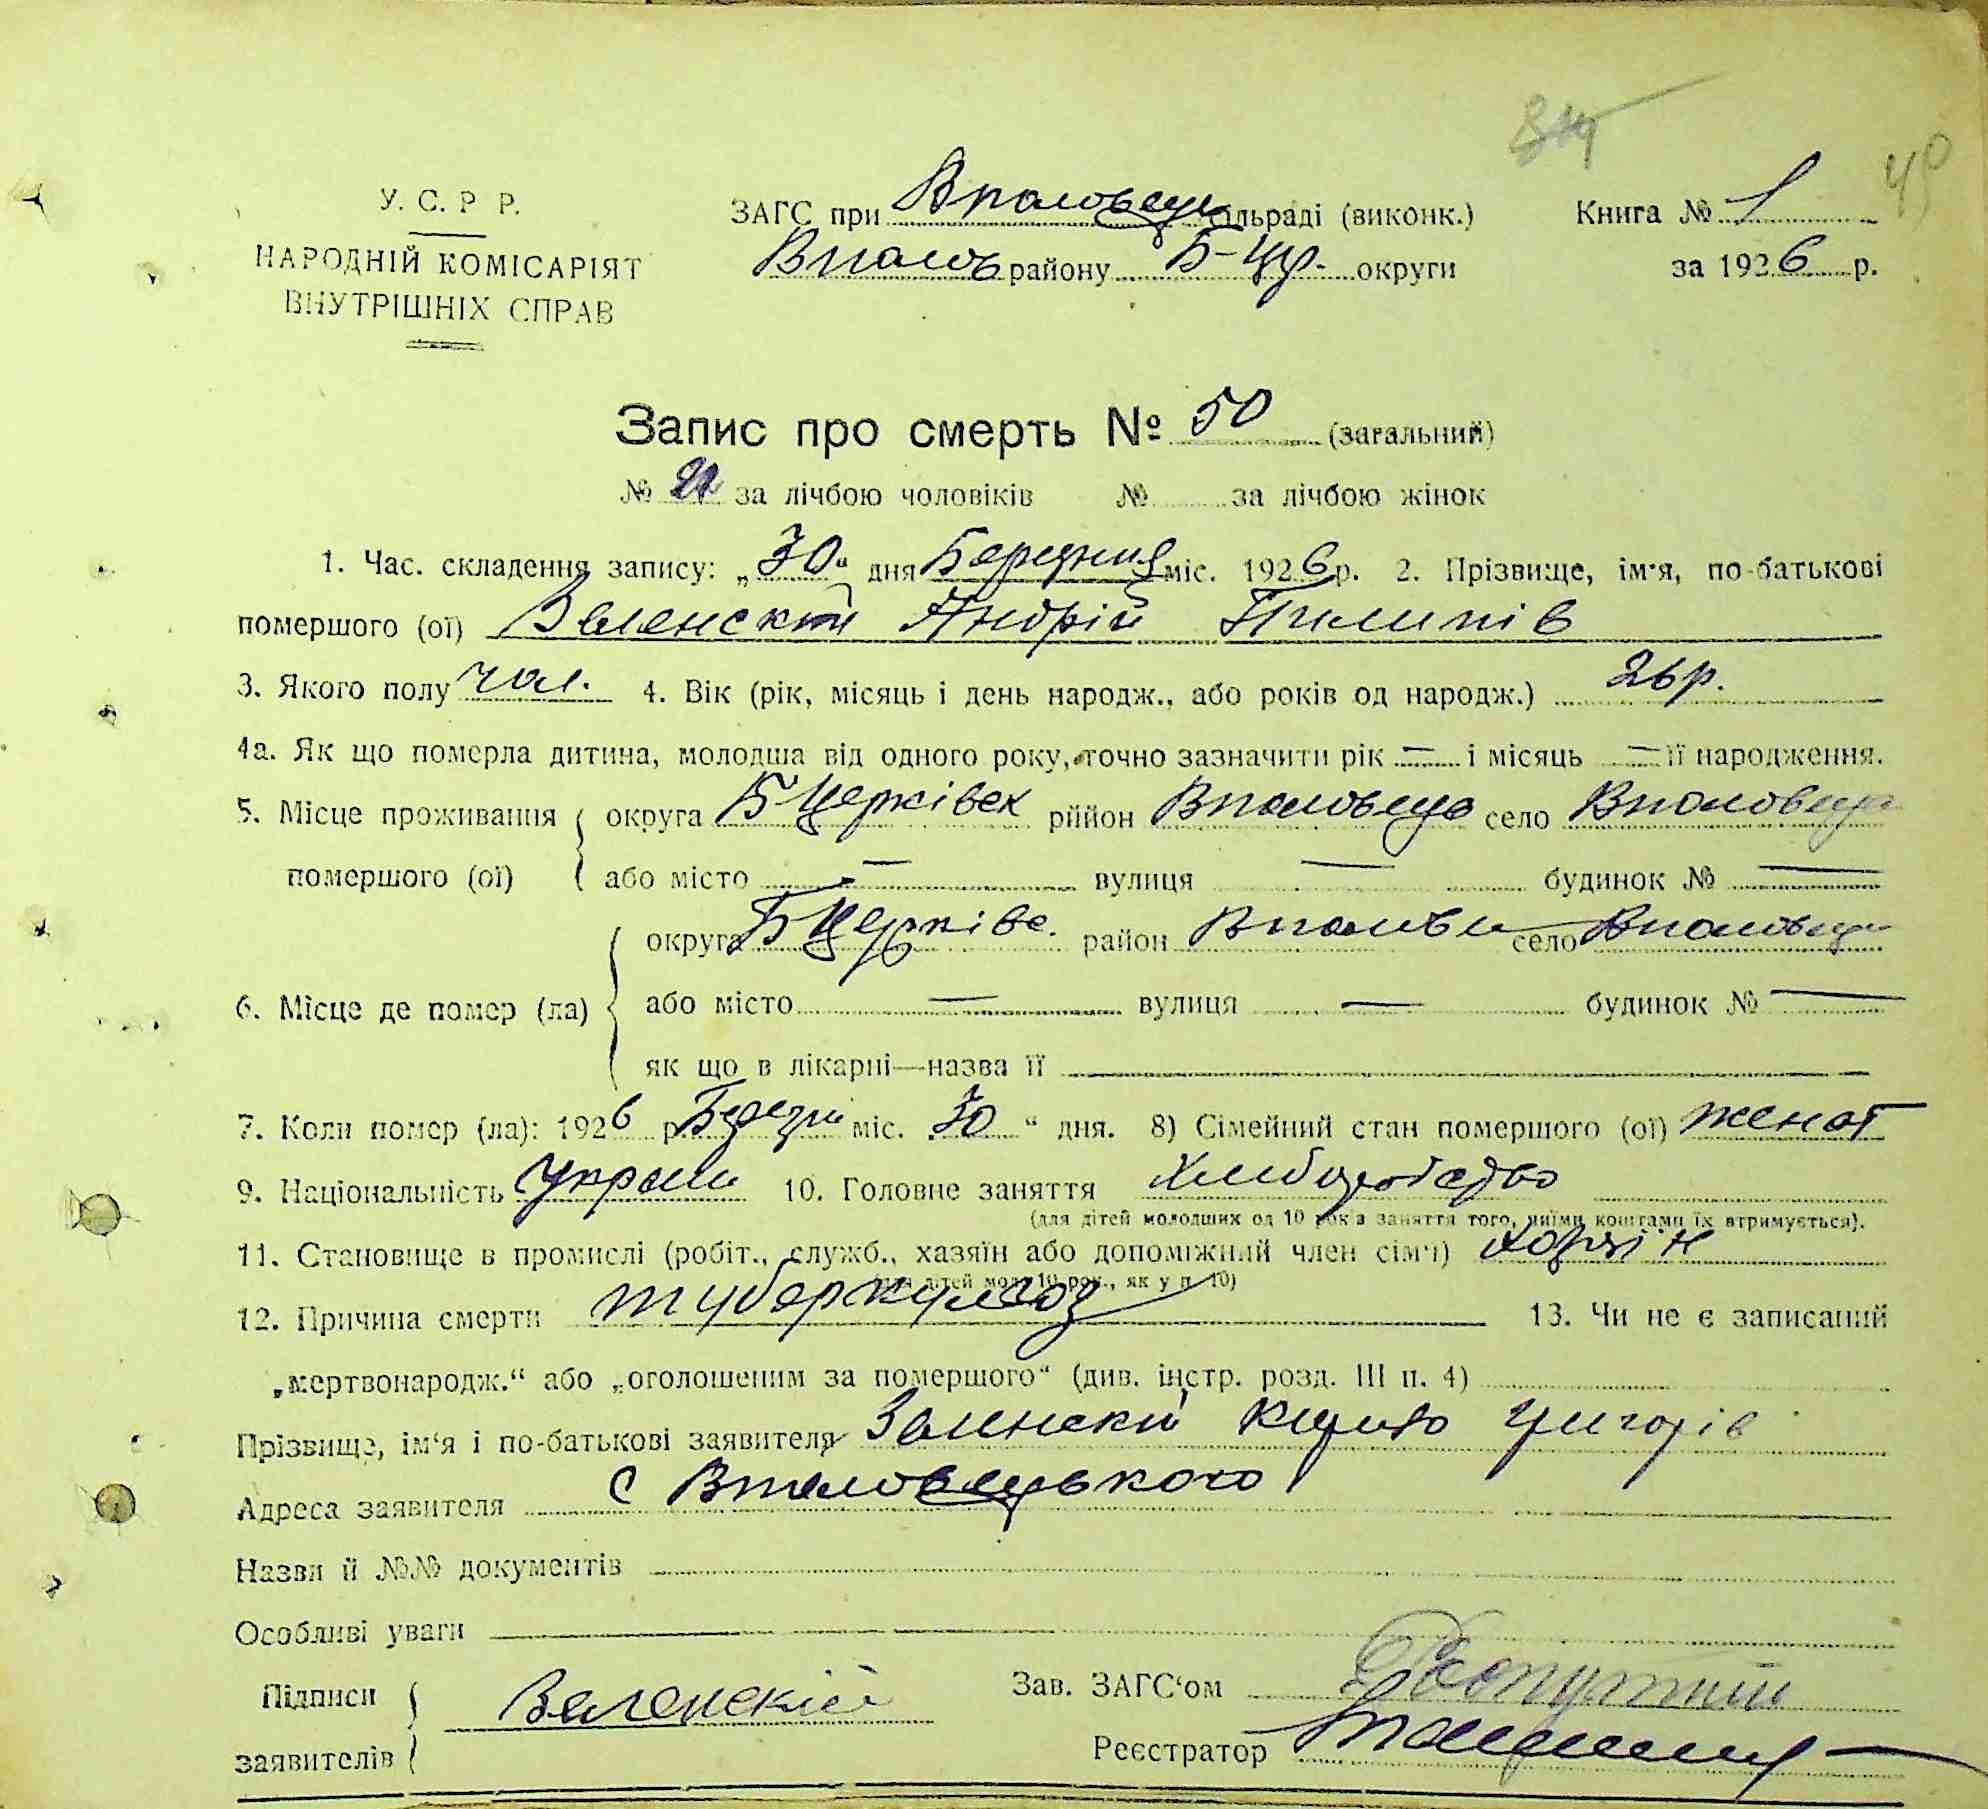 45
У. С. Р Р.
НАРОДНІЙ КОМІСАРІЯТ
ВНУТРІШНІХ СПРАВ
ЗАГС при Вполовецк сільраді (виконк.) Книга № 1
Вполов району Б-Цр. округи за 1926 р.
Запис про смерть № 50 (загальний)
№ за лічбою чоловіків № за лічбою жінок
1. Час. складення запису: „30“ дня Березня міс. 1926 р. 2. Прізвище, ім'я, по-батькові
помершого (ої) Зеленскій Андрій Пилипів
3. Якого полу чол. 4. Вік (рік, місяць і день народж., або років од народж.) 26 р.
4а. Як що померла дитина, молодша від одного року, точно зазначити рік — і місяць — її народження.
5. Місце проживання округа Б Церківск рййон Вполовецк село Вполовецк
помершого (ої) або місто — вулиця — будинок № —
округа Б Церківс. район село Вполовецк
6. Місце де помер (ла) або місто — вулиця — будинок № —
як що в лікарні—назва її
7. Коли помер (ла): 1926 р. Березн міс. 30 “ дня. 8) Сімейний стан помершого (ої) женат
9. Національність Україн 10. Головне заняття Хлибороб­ство
(для дітей молодших од 10 років заняття того, чиїми коштами їх втримується).
11. Становище в промислі (робіт., служб., хазяїн або допоміжний член сім'ї) Хозяїн
(для дітей мол. 10 рок., як у п. 10)
12. Причина смерти туберкульоз 13. Чи не є записаний
„мертвонародж.“ або „оголошеним за помершого“ (див. інстр. розд. III п. 4)
Прізвище, ім'я і по-батькові заявителя Зелнский Кирило Григорів
Адреса заявителя с Вполовецького
Назви й №№ документів
Особливі уваги
Підписи Зеленскій Зав. ЗАГС'ом
заявителів Реєстратор